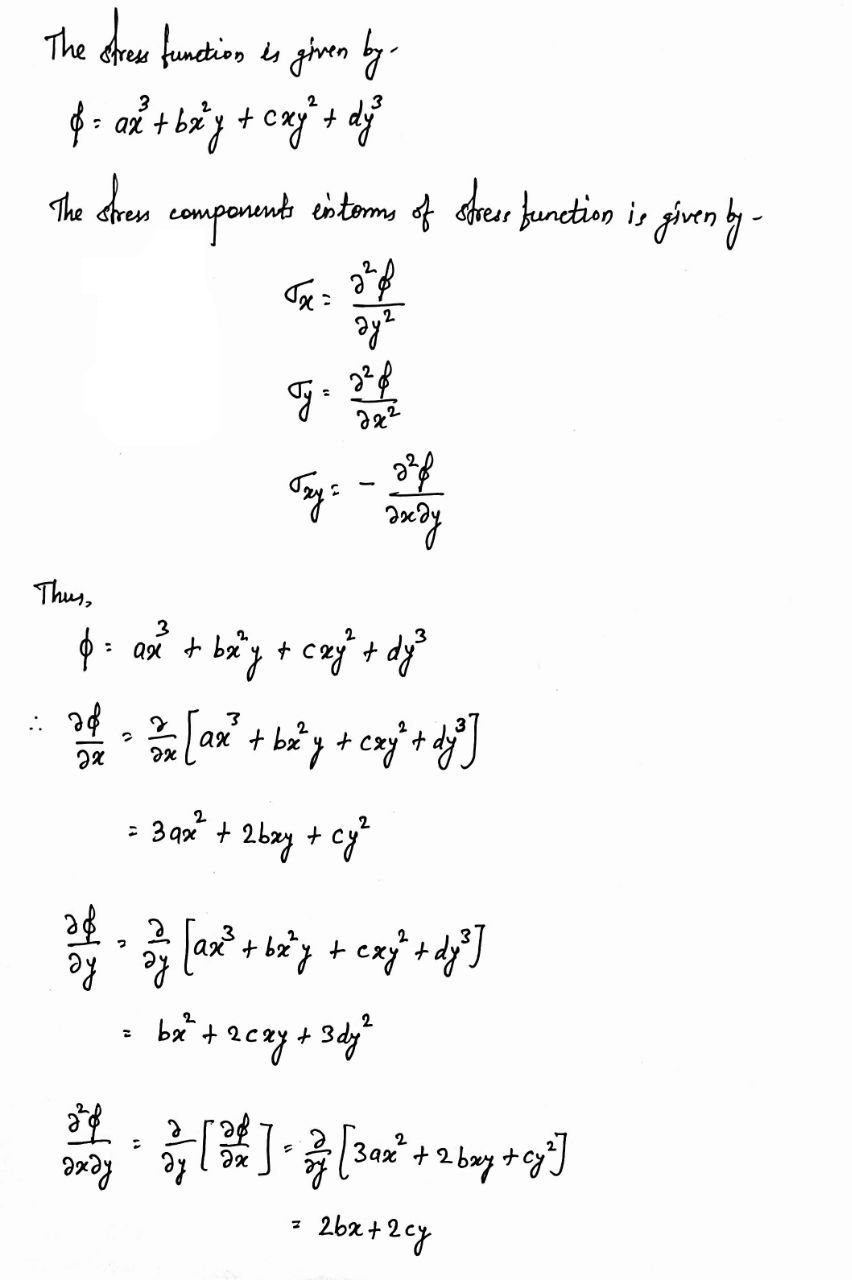 The stress function is given by -
ϕ = ax³ + bx²y + cxy² + dy³
The stress components in terms of stress function is given by -
σx = ∂²ϕ/∂y²
σy = ∂²ϕ/∂x²
σxy = - ∂²ϕ/∂x∂y
Thus,
ϕ = ax³ + bx²y + cxy² + dy³
∴ ∂ϕ/∂x = ∂/∂x [ax³ + bx²y + cxy² + dy³]
= 3ax² + 2bxy + cy²
∂ϕ/∂y = ∂/∂y [ax³ + bx²y + cxy² + dy³]
= bx² + 2cxy + 3dy²
∂²ϕ/∂x∂y = ∂/∂y [∂ϕ/∂x] = ∂/∂y [3ax² + 2bxy + cy²]
= 2bx + 2cy